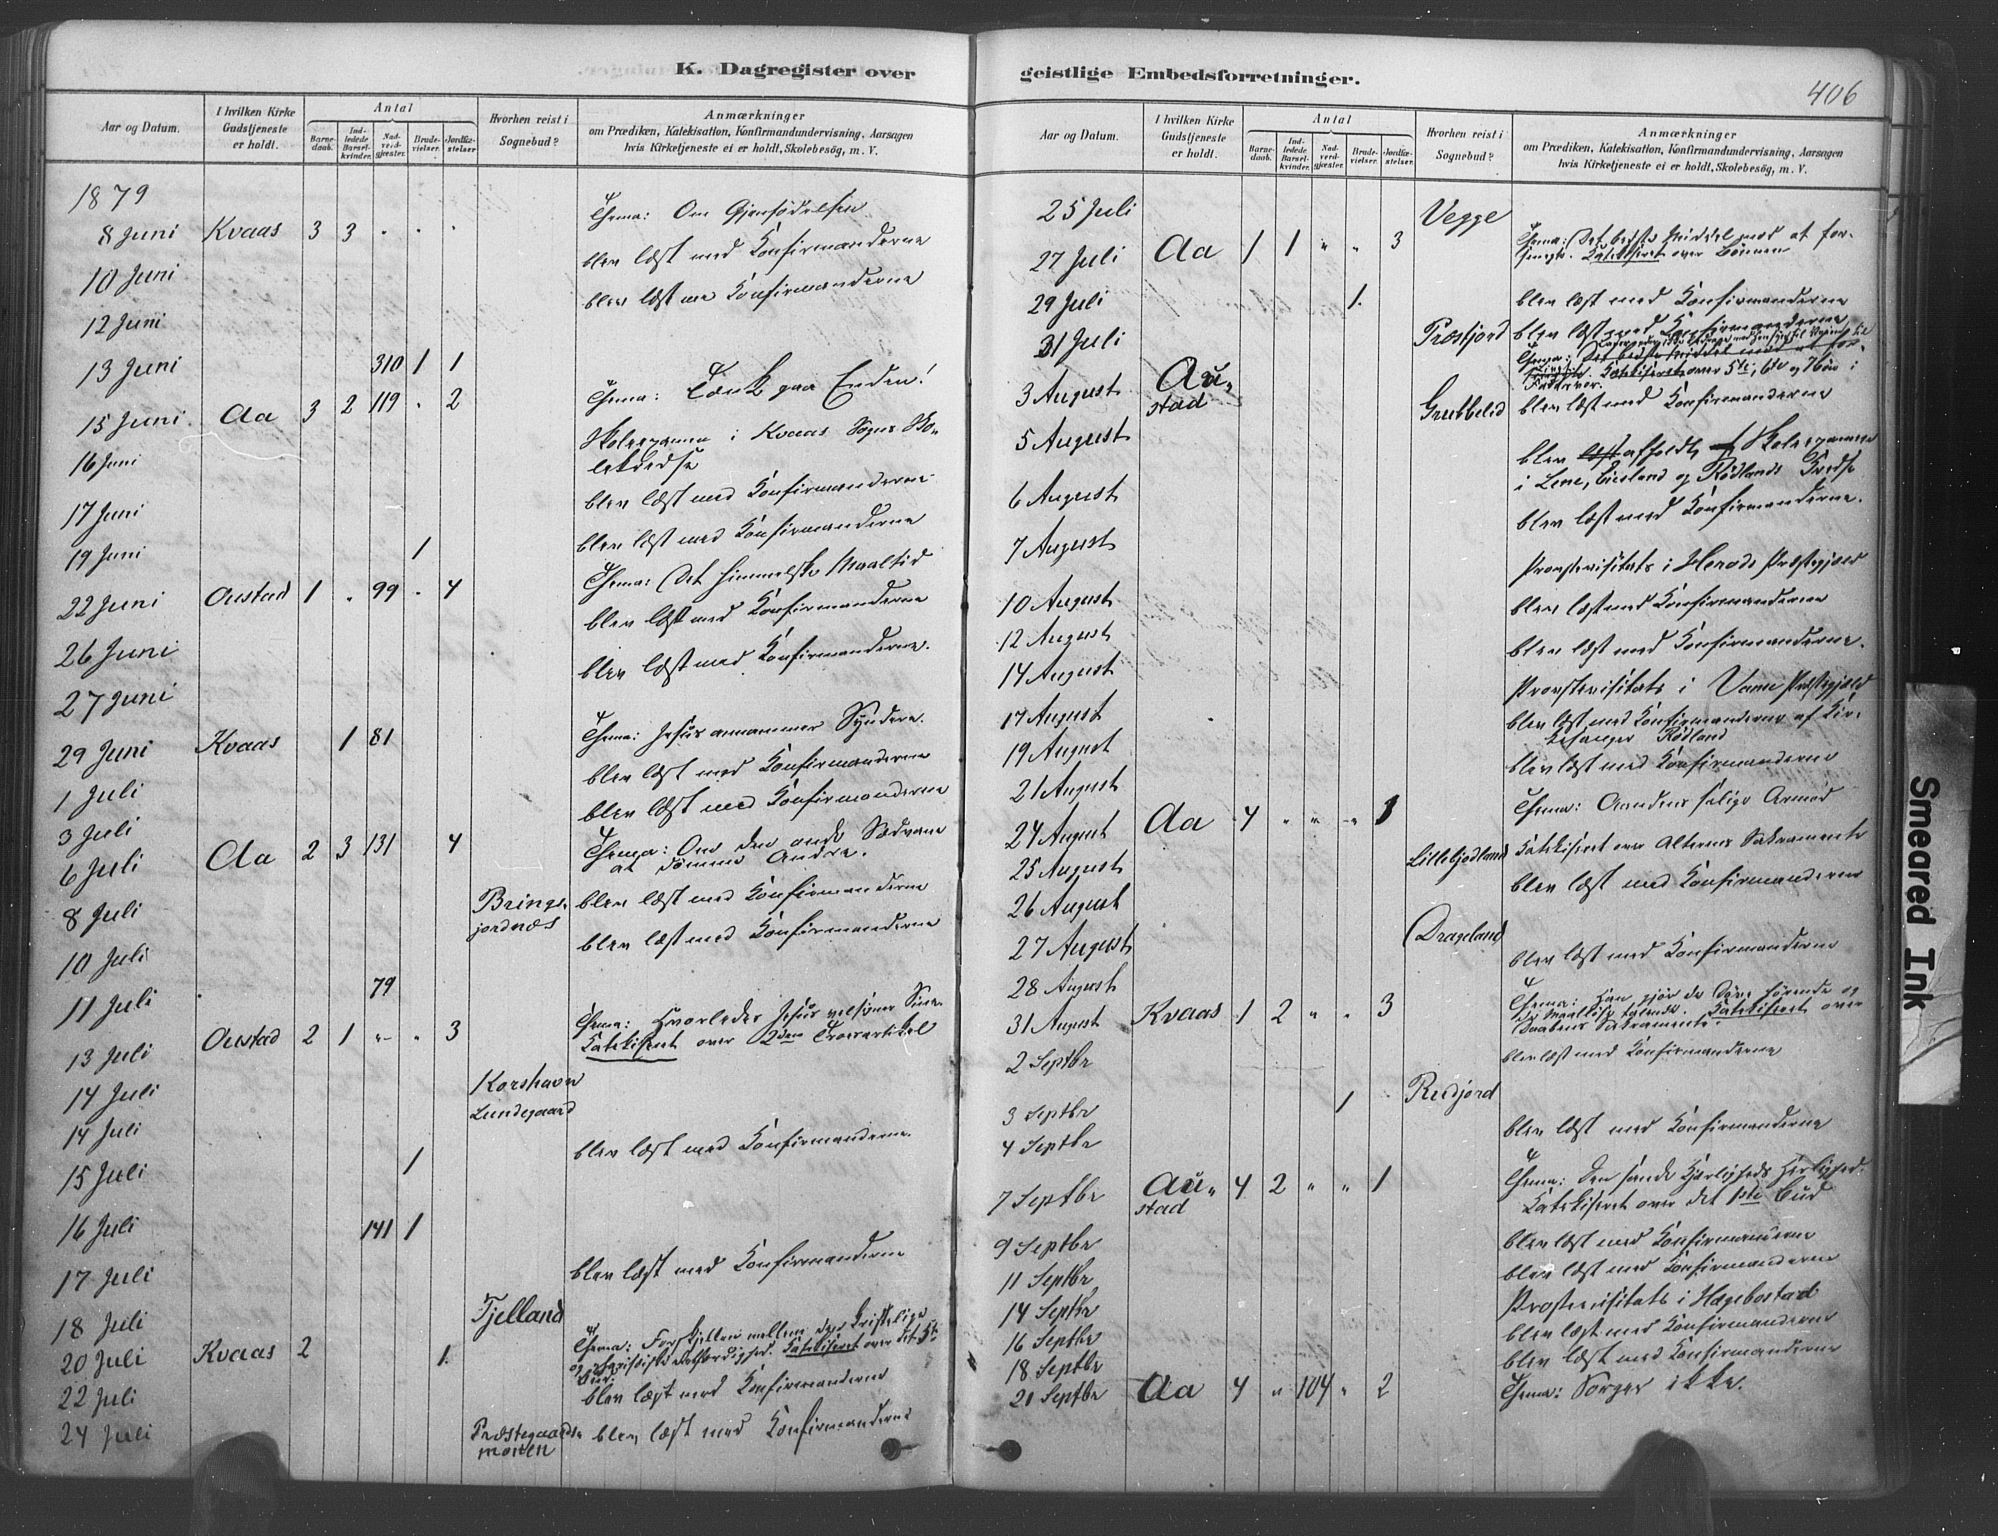 K. Dagregister over
Aar og Datum.
I hvilken Kirke Gudstjeneste er holdt.
Antal
Barnedaab.
Indledede Barselkvinder.
Nadverdgjæster.
Brudevielser.
Jordfæstelser.
Hvorhen reist i Sognebud?
Anmærkninger
om Prædiken, Katekisation, Konfirmandundervisning, Aarsagen
hvis Kirketjeneste ei er holdt, Skolebesög, m. V.
1879
8 Juni Kvaas 3 3 . . . Thema: Om Gjenfödelsen
10 Juni blev læst med Konfirmanderne
12 Juni blev læst me Konfirmanderne
13 Juni 310 1 1
15 Juni. Aa 3 2 119 . 2 Thema: Tænk paa Enden!
16 Juni Skoleexamen i Kvaas Sogns
17 Juni blev læst med Konfirmanderne
19 Juni 1 blev læst med Konfirmanderne
22 Juni Austad 1 . 99 . 4 Thema: Det himmelske Maaltid
26 Juni blev læst med Konfirmanderne
27 Juni blev læst med Konfirmanderne.
29 Juni Kvaas 1 81 Thema: Jesus annammer Syndere.
1 Juli blev læst med Konfirmanderne
3 Juli blev læst med Konfirmanderne
6 Juli Aa 2 3 131 4 Thema: Om den onde Sædvane
at dömme Andre.
8 Juli Bringsjordnæs blev læst med Konfirmanderne
10 Juli blev læst med Konfirmanderne
11 Juli 79
13 Juli Austad 2 1 " . 3 Thema: Hvorledes Jesus velsigner Sine.
Katekiseret over 2den Troesartikel
14 Juli Korshavn
14 Juli Lundegaard
15 Juli 1 blev læst med Konfirmanderne.
16 Juli 141 1
17 Juli blev læst med Konfirmanderne
18 Juli Tjelland
20 Juli Kvaas 2 1. Thema: Forskjellen mellem den Kristelige
og Farisæiske Retfærdighed. Katekiseret over det 5te
Bud.
22 Juli blev læst med Konfirmanderne
24 Juli Præstegaardsmonen blev læst med Konfirmanderne
geistlige Embedsforretninger.
406
Aar og Datum.
I hvilken Kirke Gudstjeneste er holdt.
Antal
Barnedaab.
Indledede Barselkvinder.
Nadverdgjæster.
Brudevielser.
Jordfæstelser.
Hvorhen reist i Sognebud?
Anmærkninger
om Prædiken, Katekisation, Konfirmandundervisning, Aarsagen
hvis Kirketjeneste ei er holdt, Skolebesög, m. V.
25 Juli Vegge
27 Juli Aa 1 1 " " 3 Thema: Det bedste Middel mod at for-
Katekiseret over Bönnen
29 Juli 1. blev læst med Konfirmanderne
31 Juli Præstjord blev læst med Konfirmanderne
3 August Austad Thema:
Katekiseret over 5te, 6te og 7de i
Fadervor.
5 August Grubbelid blev læst med Konfirmanderne
6 August blev læst afholdt Skoleexamen
i Lene, Eiesland og Rödlands Kreds
7 August blev læst med Konfirmanderne.
10 August Provstevisitats i Herads Præstegjæld
12 August blev læst med Konfirmanderne
14 August blev læst med Konfirmanderne.
17 August Provstevisitats i Vanse Præstegjæld
19 August blev læst med Konfirmanderne af Kir-
kesanger Rödland
21 August blev læst med Konfirmanderne
24 August Aa 4 " " " 1 Thema: Aandens salige Armod
Katekiseret over Alterens Sakramente
25 August Lillebjodland
26 August blev læst med Konfirmanderne
27 August Drageland
28 August blev læst med Konfirmanderne
31 August Kvaas 1 2 " " 3 Thema: Han gjör de Döve hörende og
de Maallöse talende. Katekiseret over
Daabens Sakramente.
2 Septbr blev læst med Konfirmanderne
3 Septbr 1 Redjord
4 Septbr blev læst med Konfirmanderne
7 Septbr Austad 4 2 " " 1 Thema: Den sande Kjærligheds Herlighed.
Katekiseret over det 1ste Bud
9 Septbr blev læst med Konfirmanderne
11 Septbr blev læst med Konfirmanderne
14 Septbr Provstevisitats i Hægebostad
16 Septbr blev læst med Konfirmanderne
18 Septbr blev læst med Konfirmanderne
21 Septbr Aa 4 " 104 " 2 Thema: Sörger ikke.
Smeared Ink